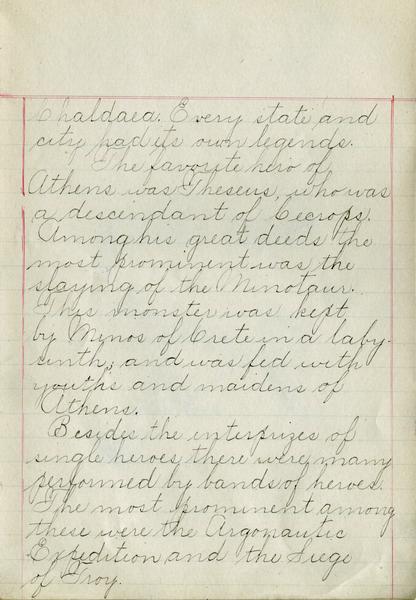 Chaldaea. Every state and
city had its own legends.
The favorite hero of
Athens was Theseus, who was
a descendant of Cecrops.
Among his great deeds the
most prominent was the
slaying of the Minotaur.
This monster was kept
by Minos of Crete in a laby-
rinth; and was fed with
youths and maidens of
Athens.
Besides the enterprizes of
single heroes there were many
performed by bands of heroes.
The most prominent among
these were the Argonautic
Expedition and the Siege
of Troy.